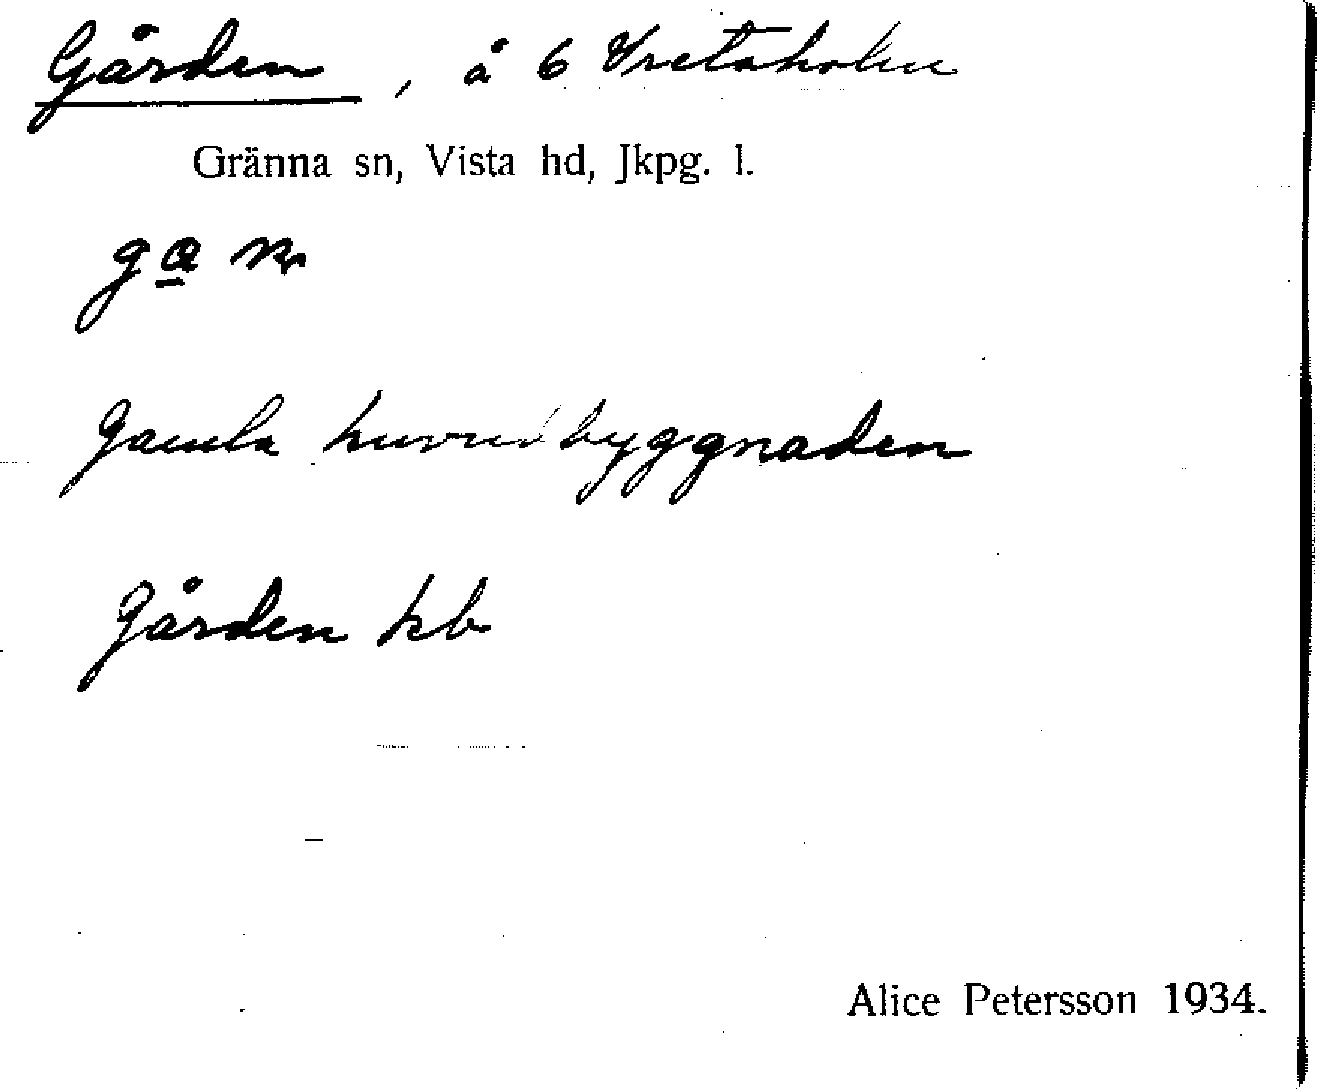 Gården, å 6 Vretaholm
Gränna sn, Vista hd, Jkpg. l.
Gamla huvudbyggnaden
Gården kb
Alice Petersson 1934.